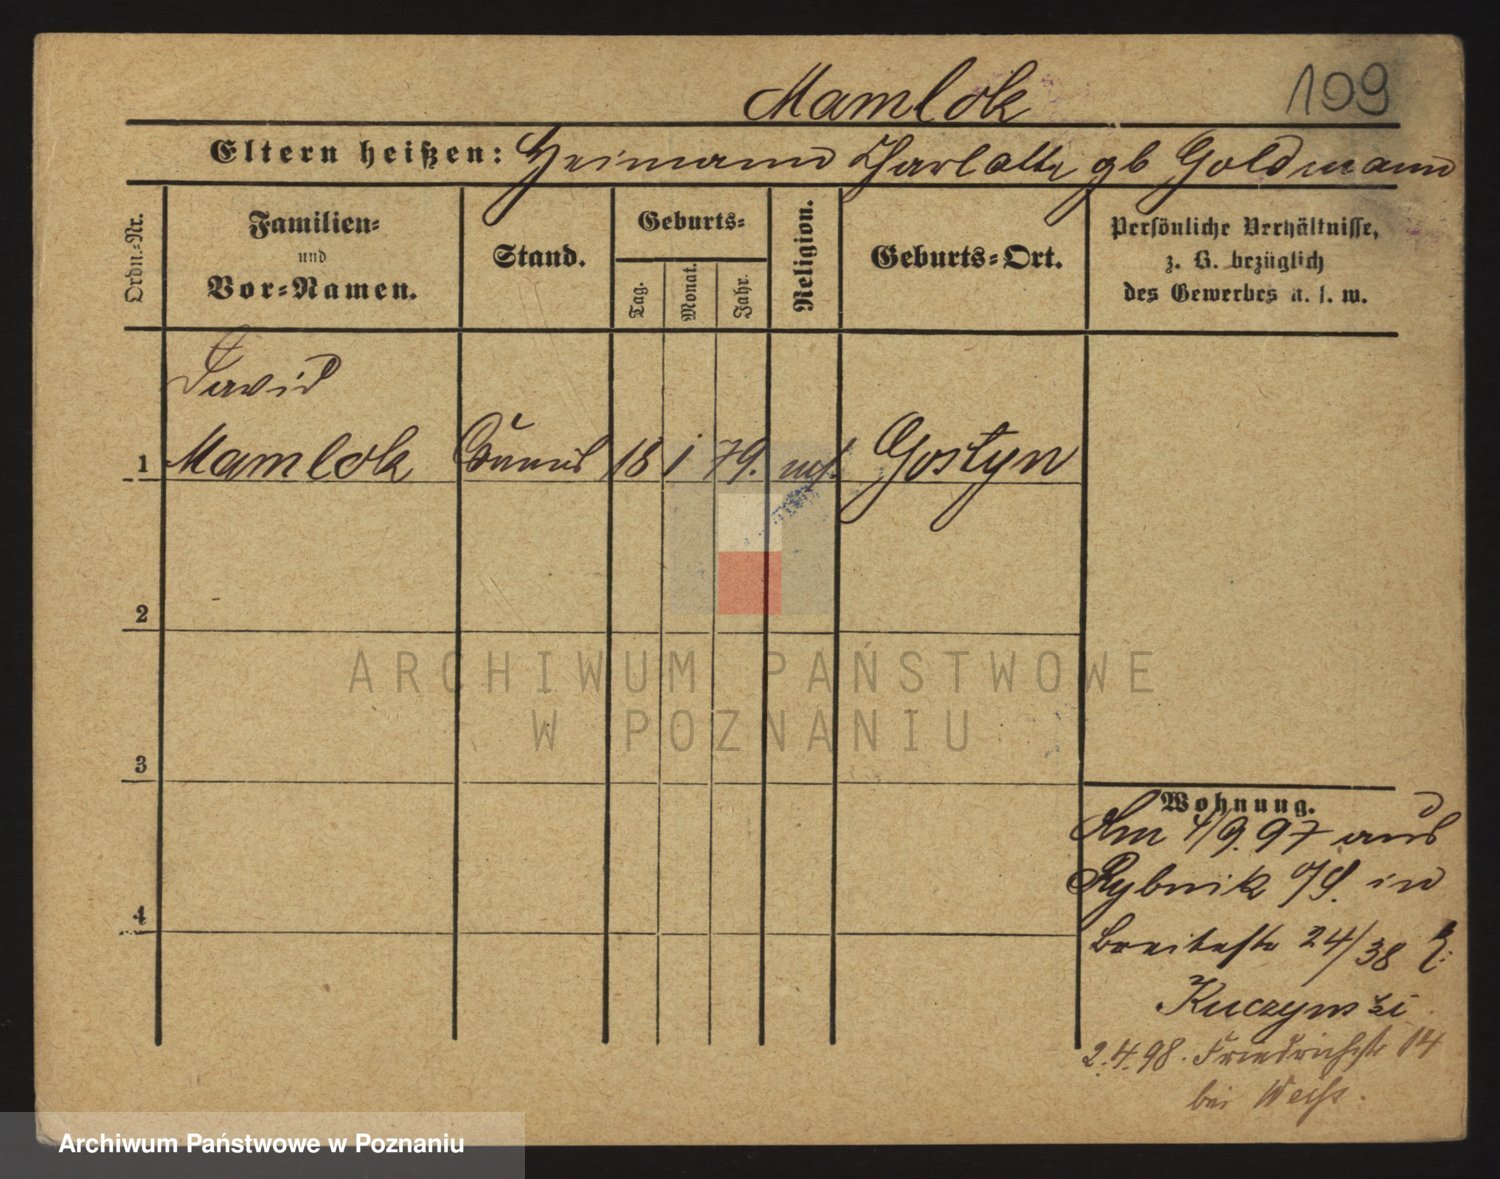 Mamlok
109
Eltern heißen: Heimann Charlotte gb Goldmann
Ordn.-Nr.
Familien-
und
Vor-Namen.
Stand.
Geburts-
Tag.
Monat.
Jahr.
Religion.
Geburts-Ort.
Persönliche Verhältnisse,
z. B. bezüglich
des Gewerbes u. s. w.
David
1 Mamlok 18 1 79. mos. Gostyn
2
3
4
Wohnung.
Am 4/9.97 aus
Rybnik O/S. in
Breitestr 24/38 b:
Kuczynski
2.4.98. Friedrichstr 14
bei Weiss.
ARCHIWUM PAŃSTWOWE
W POZNANIU
Archiwum Państwowe w Poznaniu